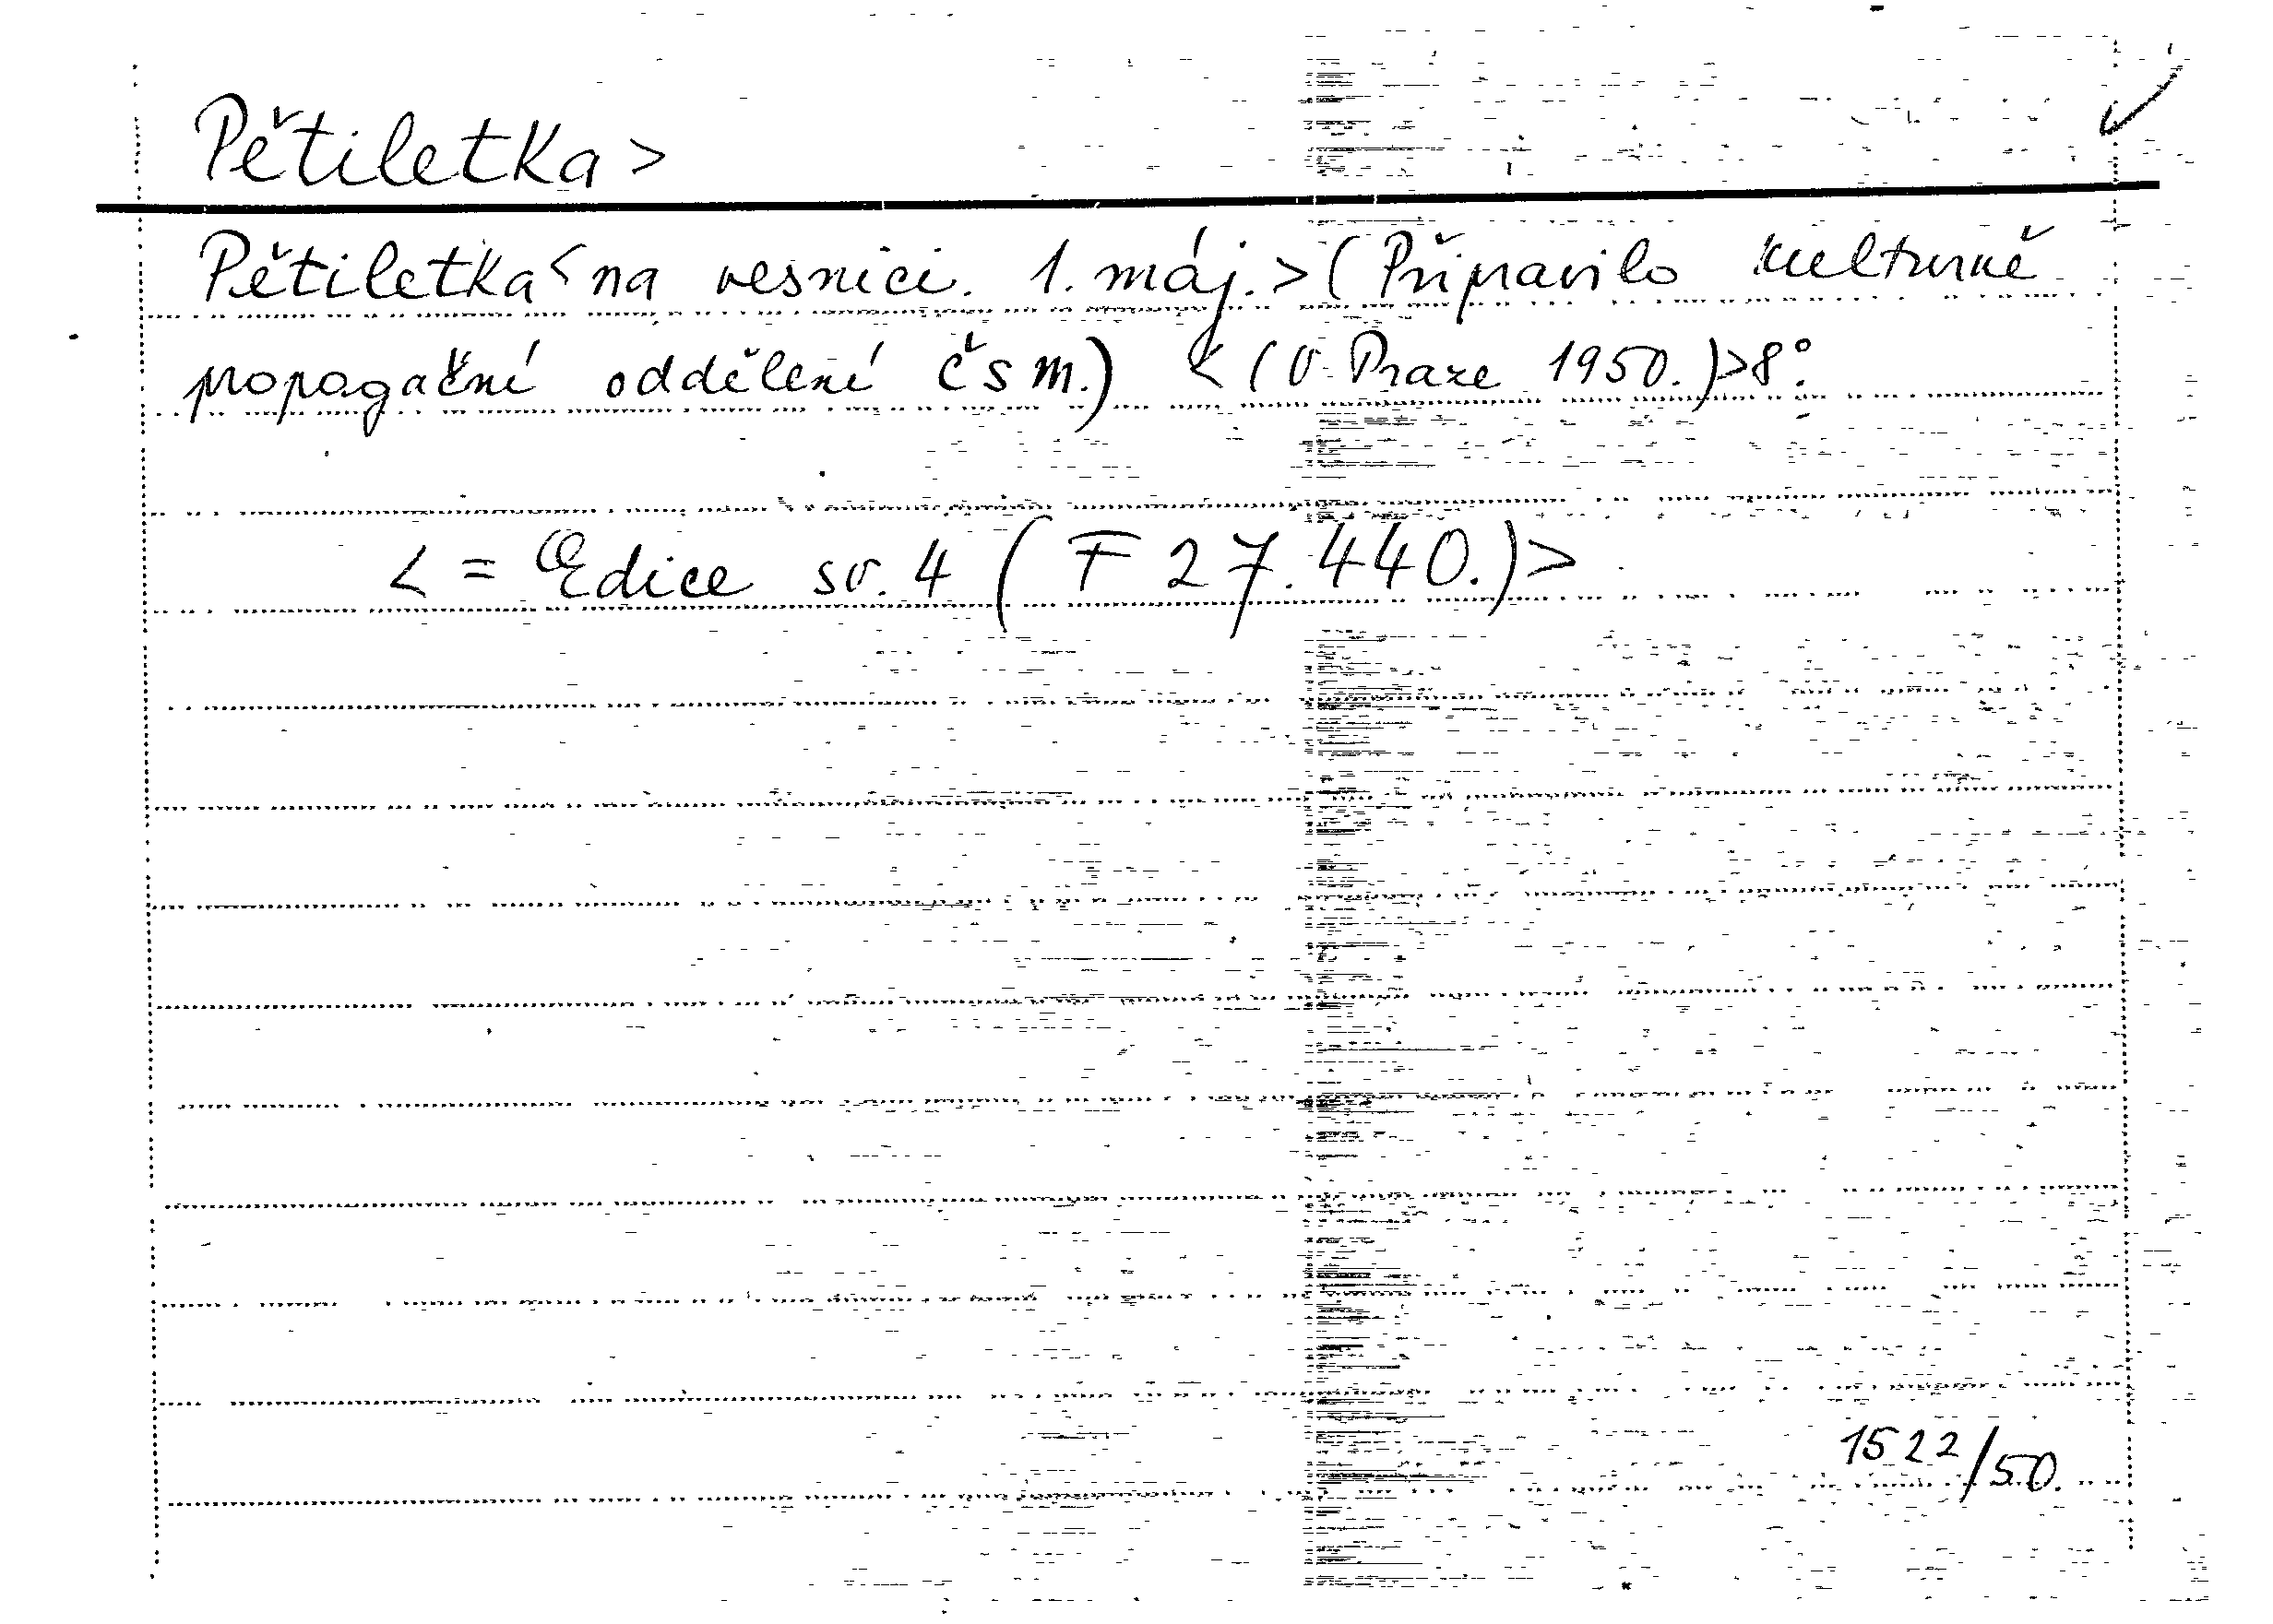 Pětiletka >
Pětiletka < na vesnici. 1. máj. > (Připravilo kulturně
propagační oddělení čsm.) < (V Praze 1950.) > 8°.
< = Edice sv. 4 (F 27.440.) >
1522/50.